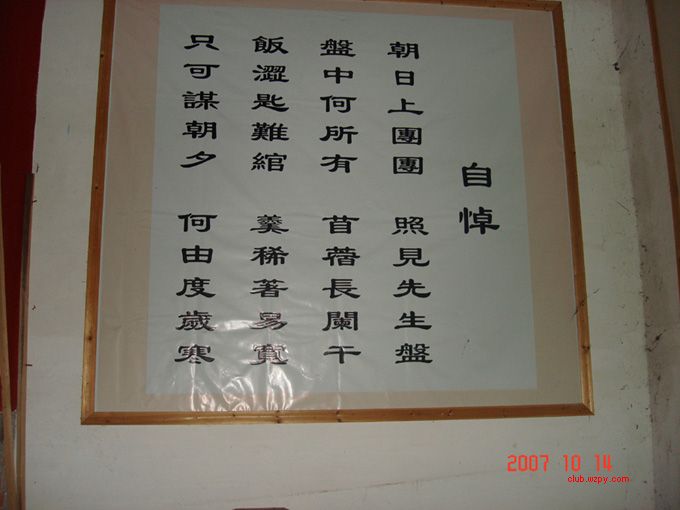 自悼
朝日上團團 照見先生盤
盤中何所有 苜蓿長闌干
飯澀匙難綰 羹稀箸易寬
只可謀朝夕 何由度歲寒
2007 10 14
club.wzpy.com